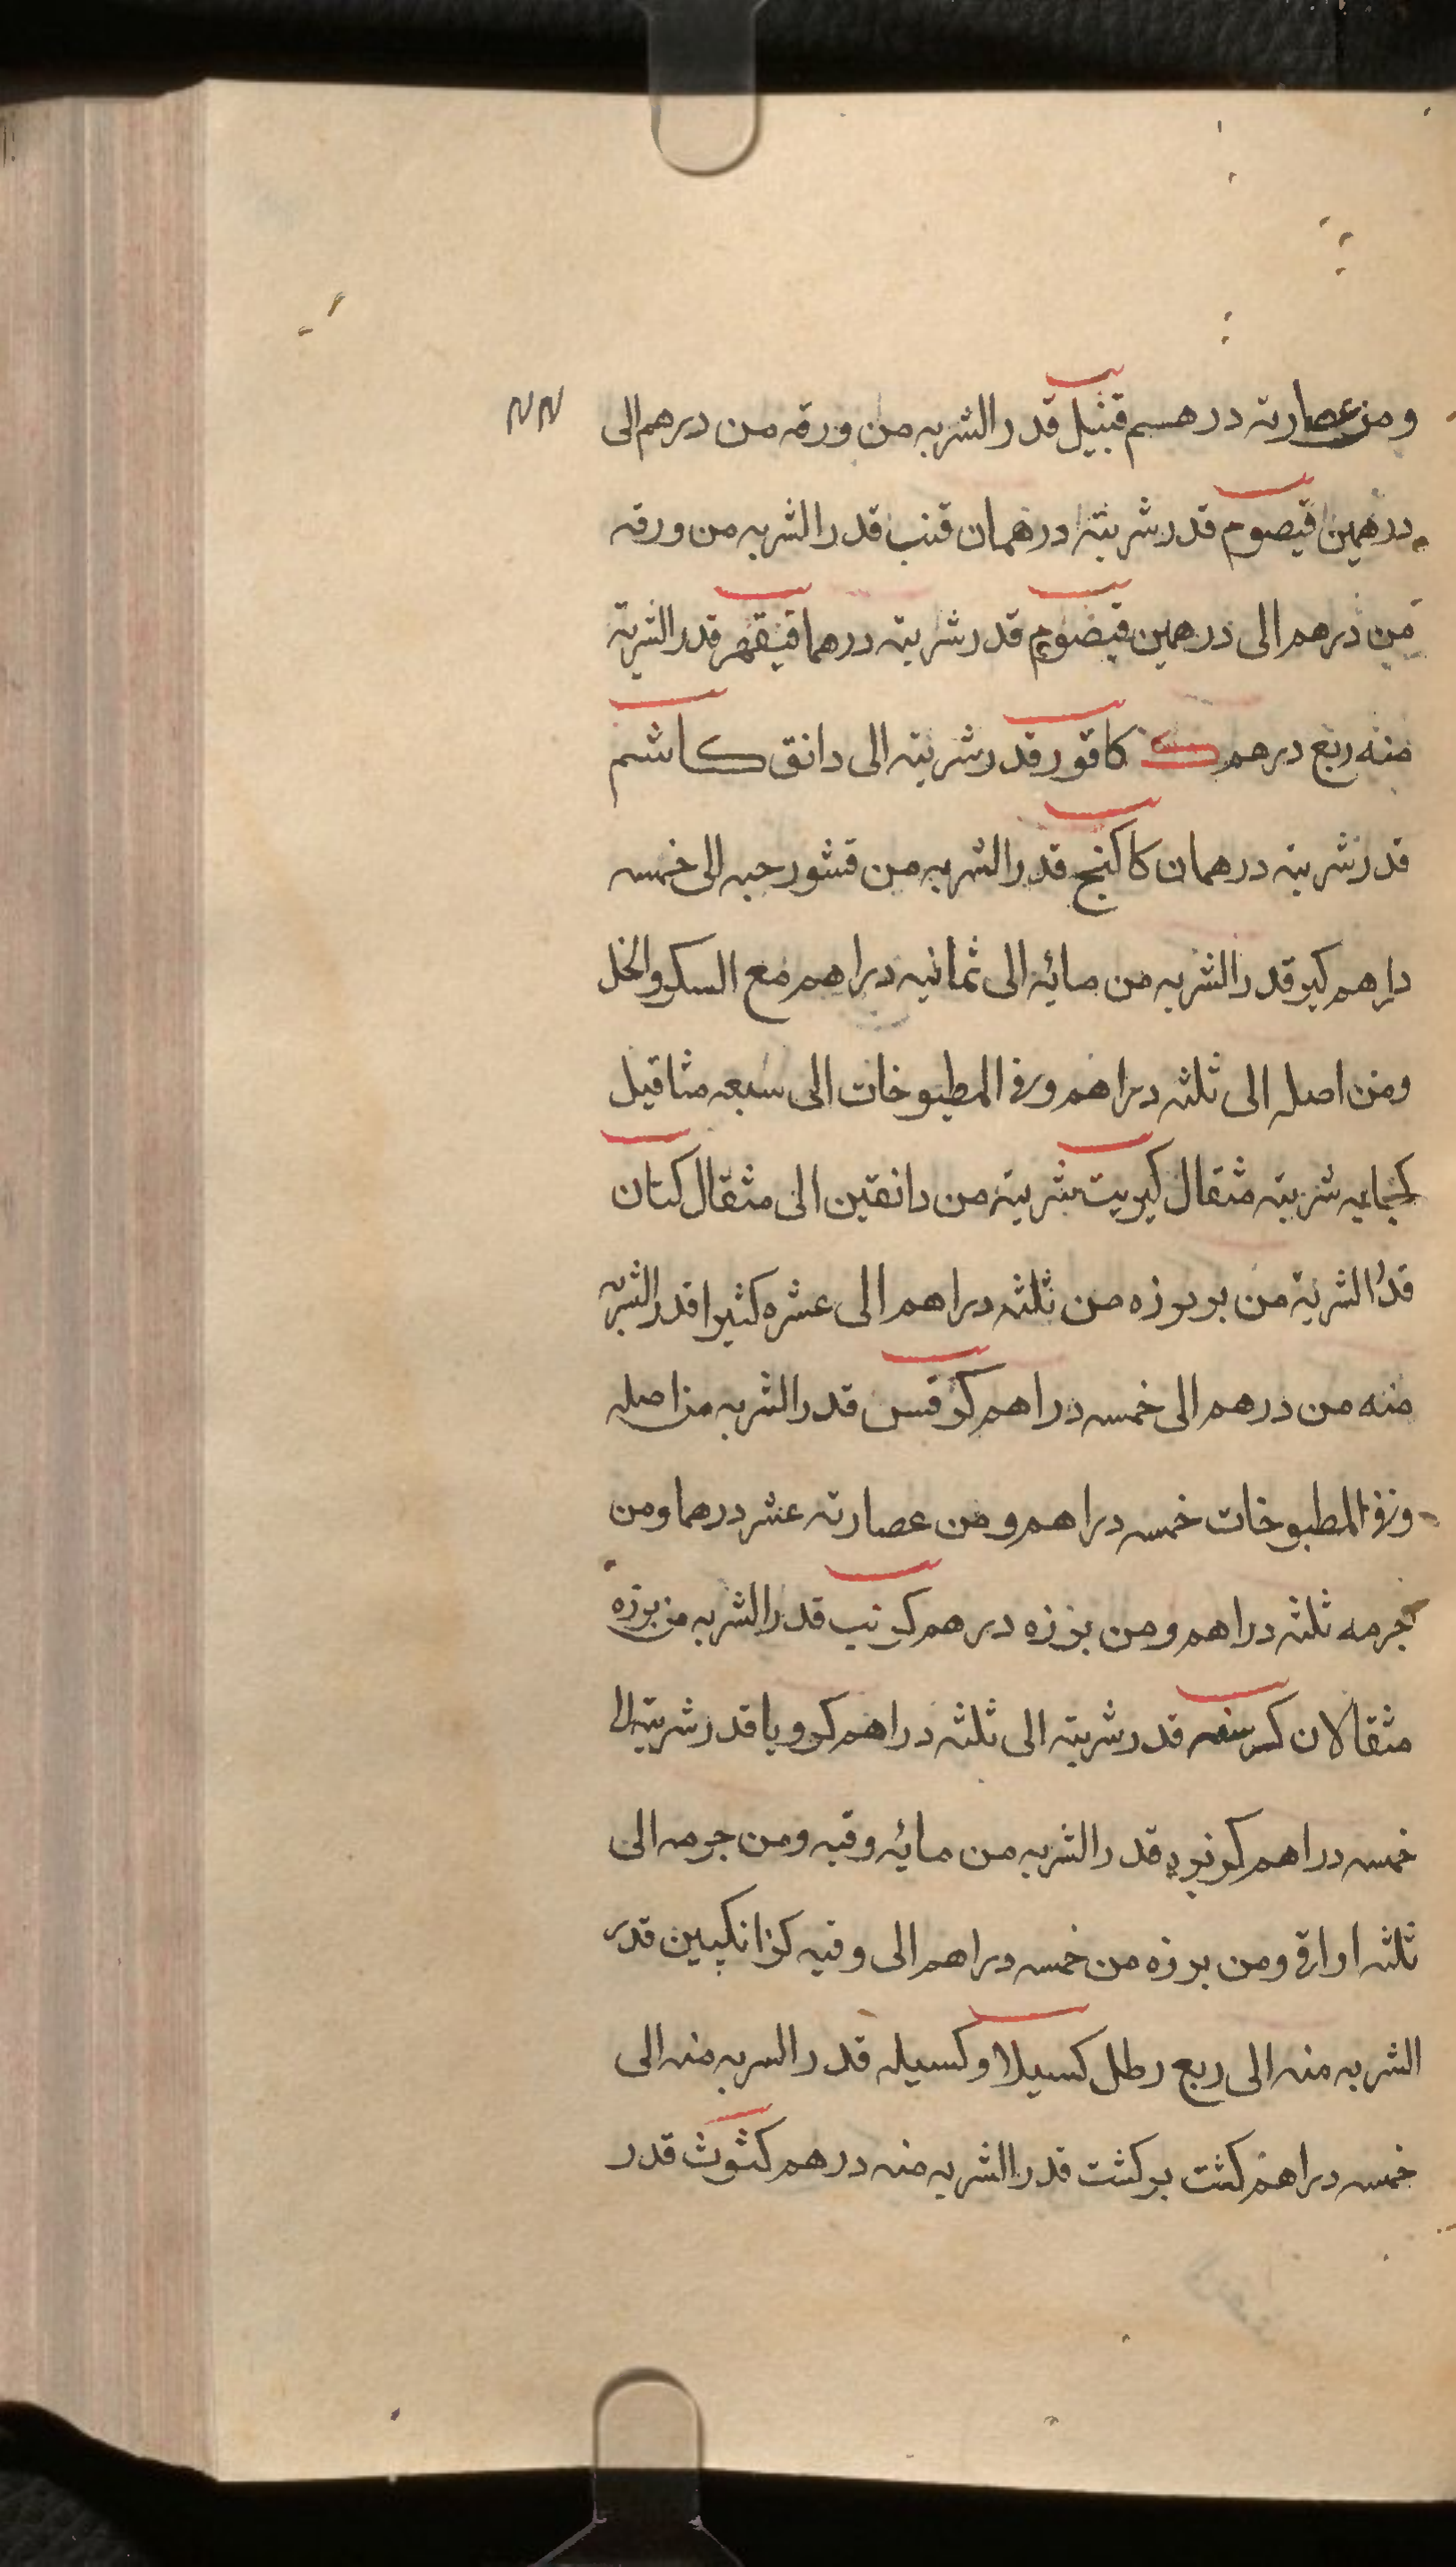 ومن عصارته درهم قنبيل قدر الشربه من ورقه من درهم الى
درهمين قيصوم قدر شربته درهمان قنب قدر الشربه من ورقه
من درهم الى درهمين قيضوم قدر شربته درهما فيقهر قدر الشربة
منه ربع درهم ك كافور قدر شربته الى دانق كاشم
قدر شربته درهمان كاكنج قدر الشربه من قشور حبه الى خمسه
دارهم كبر قدر الشربه من مائه الى ثمانيه دراهم مع السكر والخل
ومن اصله الى ثلثه دراهم وفى المطبوخات الى سبعه مثاقيل
شربته مثقال كبريت شربته من دانقين الى مثقال كتان
قدر الشربة من بربوزه من ثلثه دراهم الى عشره كثيرا قدر الشربه
منه من درهم الى خمسه دراهم كرفس قدر الشربه من اصله
وفى المطبوخات خمسه دراهم ومن عصارته عشر درهما ومن
جرمه ثلثه دراهم ومن بزره درهم كرنب قدر الشربه من بزره
مثقالان كرسنه قدر شربته الى ثلثه دراهم كرويا قدر شربته الى
خمسه دراهم قدر الشربه من مائه وقيه ومن جرمه الى
ثلثه اواقى ومن بزره من خمسه دراهم الى وقيه كزانكبين قدر
الشربه منه الى ربع رطل كسيلا وكسيله قدر السربه منه الى
خمسه دراهم كشت بركشت قدر الشربه منه درهم كشوث قدر